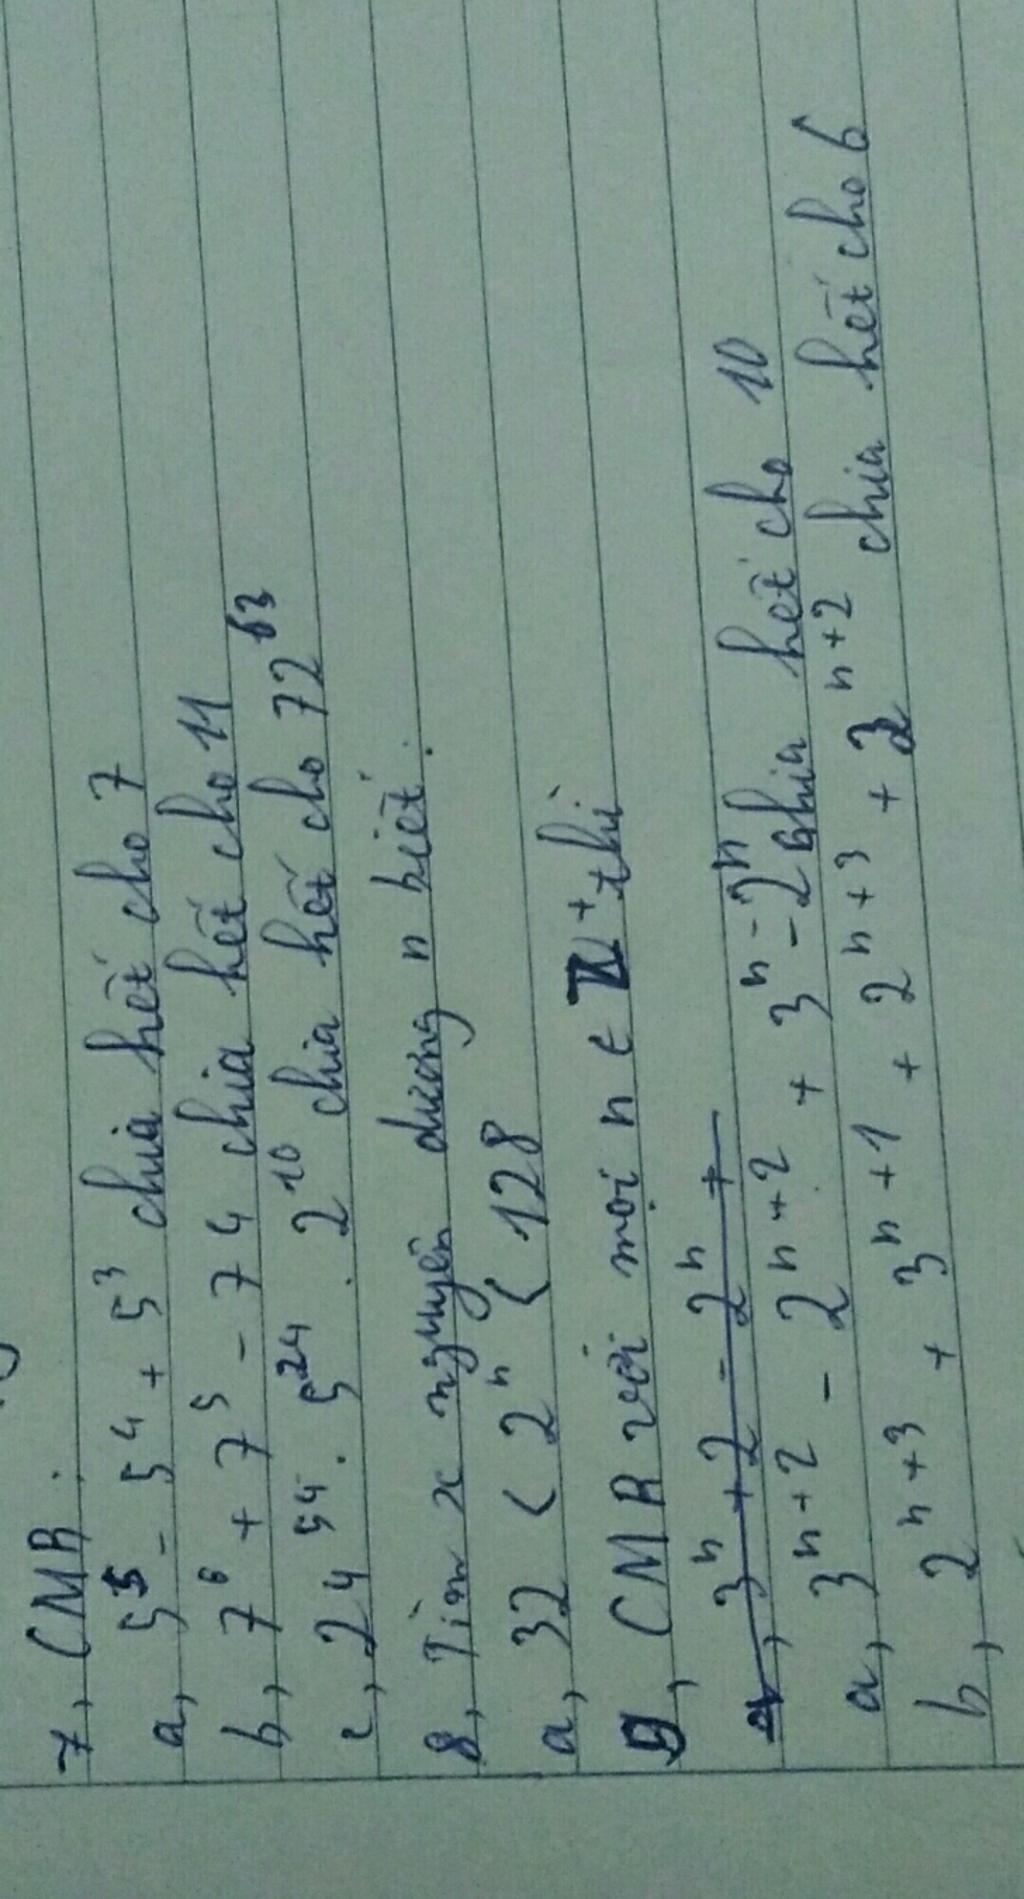 7, CMR:
a, 5⁵ - 5⁴ + 5³ chia hết cho 7
b, 7⁶ + 7⁵ - 7 4 chia hết cho 11
c, 24⁵⁴ . 5²⁴ . 2¹⁰ chia hết cho 72⁶³
8, Tìm x nguyên dương n biết:
a, 32 < 2ⁿ < 128
9, CMR với mọi n ∈ N⁺ thì
a, 3ⁿ + 2 - 2ⁿ +
a, 3ⁿ⁺² - 2ⁿ⁺² + 3ⁿ - 2ⁿ chia hết cho 10
b, 2ⁿ⁺³ + 3ⁿ⁺¹ + 2ⁿ⁺³ + 3ⁿ⁺² chia hết cho 6